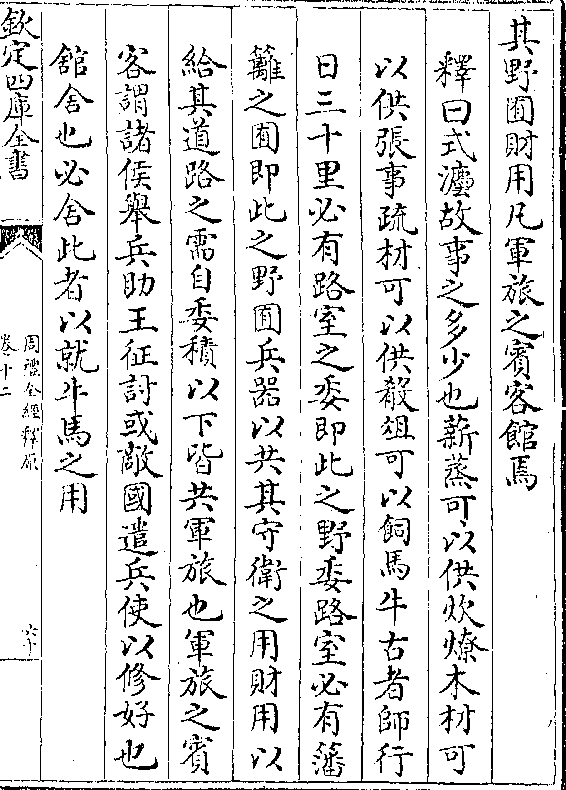 其野囿財用凡軍旅之賓客館焉
釋曰式灋故事之多少也薪蒸可以供炊燎木材可
以供張事疏材可以供殽俎可以飼馬牛古者師行
日三十里必有路室之委即此之野委路室必有藩
籬之囿即此之野囿兵器以共其守衛之用財用以
給其道路之需自委積以下皆共軍旅也軍旅之賓
客謂諸侯舉兵助王征討或敵國遣兵使以修好也
舘舍也必舍此者以就牛馬之用
欽定四庫全書
周禮全經釋原
卷十二
六十